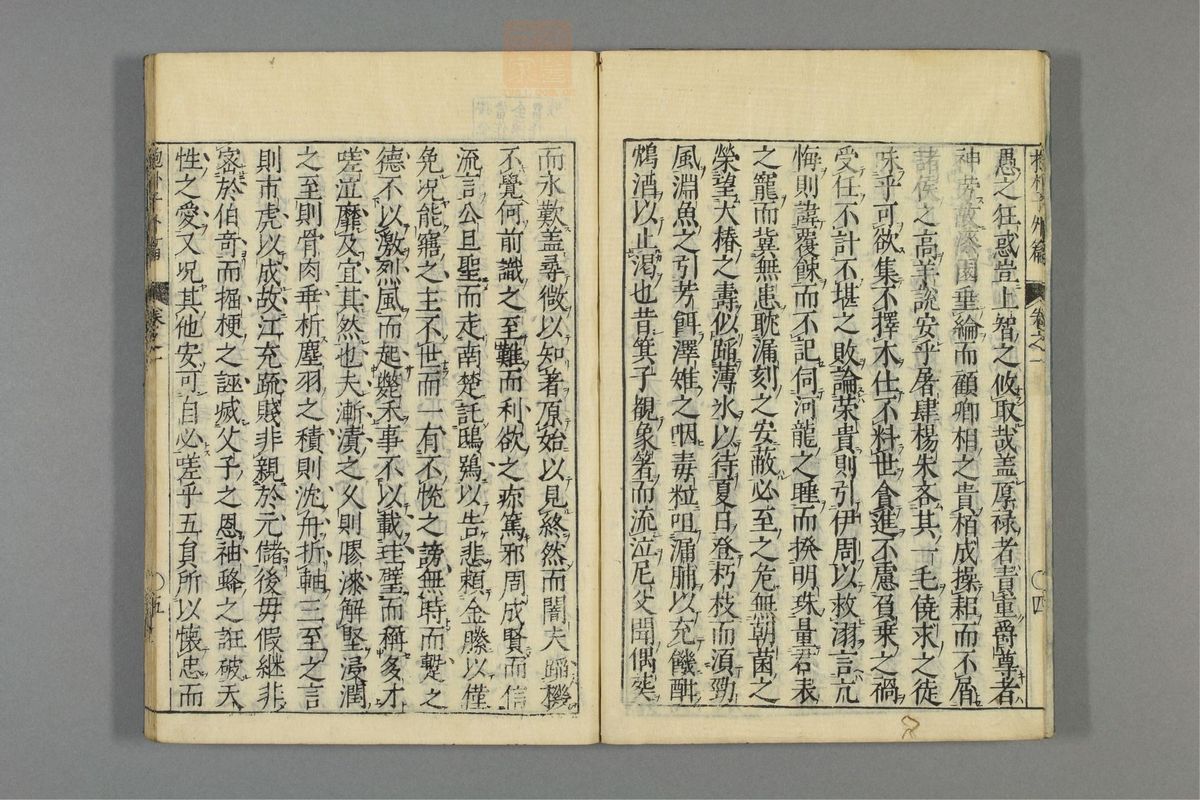 愚之狂惑豈上智之攸取哉盖厚禄者責重爵尊者
神勞故漆園垂綸而顧卿相之貴栢成操耜而不屑
諸侯之高羊說安乎屠肆楊朱吝其一毛僥求之徒
昧乎可欲集不擇木仕不料世貪進不慮負乗之禍
受任不計不堪之敗論荣貴則引伊周以救溺言亢
悔則諱覆餗而不記伺河龍之睡而撩明珠量君表
之寵而冀無患耽漏刻之安蔽必至之危無朝菌之
榮望大椿之壽似蹈薄氷以待夏日登朽枝而湏勁
風淵魚之引芳餌澤雉之咽毒粒咀漏脯以充饑酣
鴆酒以止渴也昔箕子覩象箸而流泣尼父聞偶葬
抱朴子外篇 卷之一 〇四
而永歎盖尋微以知著原始以見終然而闇夫蹈機
不覺何前識之至難而利欲之疢篤邪周成賢而信
流言公旦聖而走南楚託鴟鴞以告悲賴金縢以僅
免况能寤之主不世而一有不悅之謗無時而蹔乏
德不以激烈風而起斃禾事不以載珪璧而稱多才
嗟泣靡及宜其然也夫漸漬之久則膠漆解堅浸潤
之至則骨肉乖析塵羽之積則沈舟折軸三至之言
則市虎以成故江充疏賤非親於元儲後毋假継非
宻於伯竒而掘梗之誣㓕父子之恩袖蜂之誑破天
性之愛又况其他安可自必嗟乎五員所以懐忠而
抱朴子外篇 卷之一 〇五